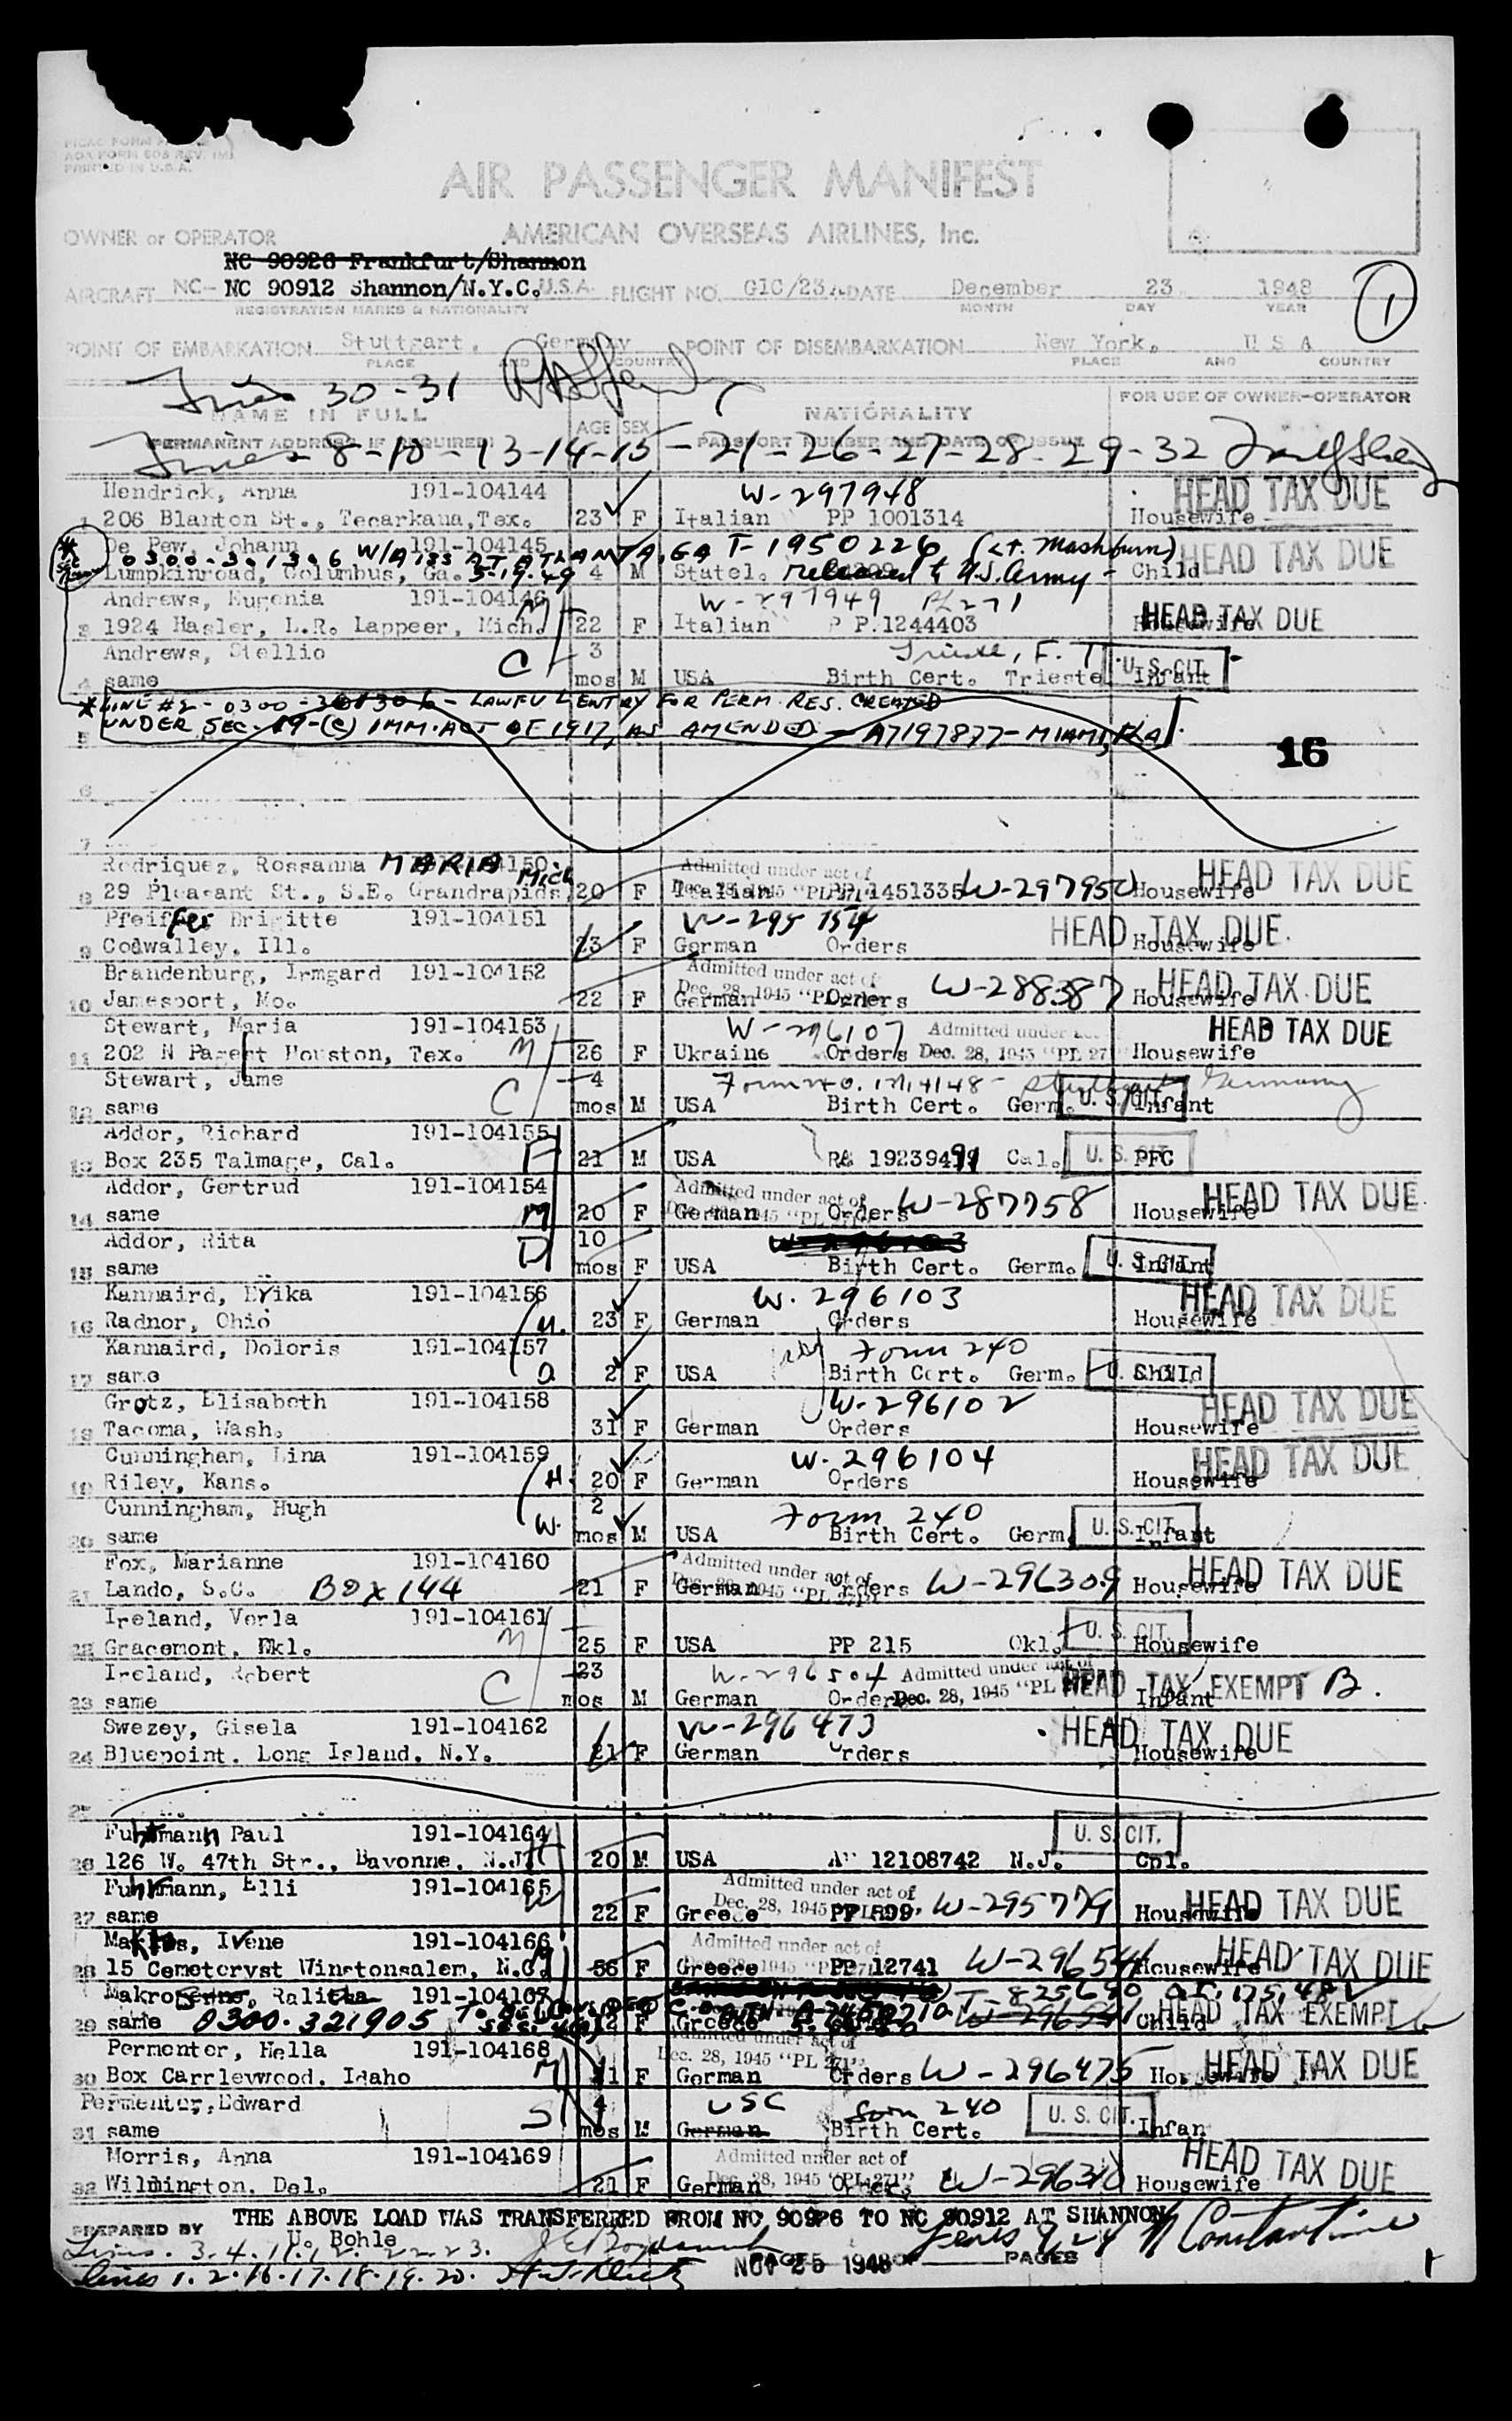 AIR PASSENGER MANIFEST
OWNER or OPERATOR AMERICAN OVERSEAS AIRLINES, Inc.
NC 90926 Frankfurt/Shannon
AIRCRAFT NC- NC 90912 Shannon/N.Y.C. U.S.A. FLIGHT NO. G1C/23 DATE December 23 1948
REGISTRATION MARKS & NATIONALITY MONTH DAY YEAR
1
POINT OF EMBARKATION Stuttgart, Germany POINT OF DISEMBARKATION New York, U S A
PLACE AND COUNTRY PLACE AND COUNTRY
Lines 30-31
NAME IN FULL AGE SEX NATIONALITY FOR USE OF OWNER-OPERATOR
(PERMANENT ADDRESS IF REQUIRED) PASSPORT NUMBER AND DATE OF ISSUE
Lines 8-10-13-14-15-21-26-27-28-29-32
Hendrick, Anna 191-104144 W-297948 HEAD TAX DUE
1 206 Blanton St., Tecarkana, Tex. 23 F Italian PP 1001314 Housewife
De Pew, Johann 191-104145 HEAD TAX DUE
0300-301306 W/A 155 AT ATLANTA, GA T-1950226 (Lt. Mashburn)
Lumpkinroad, Columbus, Ga. 5-19-49 4 M Statel. released to U.S. Army - Child
Andrews, Eugenia 191-104146 M W-297949 PL 271 HEAD TAX DUE
3 1924 Hasler, L.R. Lappeer, Mich. 22 F Italian P P.1244403 Housewife
Andrews, Stellio C 3 Trieste, F. T. U. S. CIT.
4 same mos M USA Birth Cert. Trieste Infant
* LINE #2 - 0300-301306 - LAWFUL ENTRY FOR PERM. RES. CREATED
UNDER SEC. 19-(C) IMM. ACT OF 1917, AS AMENDED - A7197877 - MIAMI, FLA.
5
16
6
7
Rodriquez, Rossanna MARIA 104150 Admitted under act of HEAD TAX DUE
8 29 Pleasant St., S.E. Grandrapids, Mich 20 F Italian Dec. 28, 1945 "PL 271" PP 1451335 W-297950 Housewife
Pfeiffer Brigitte 191-104151 W-295154 HEAD TAX DUE.
9 Codwalley, Ill. 23 F German Orders Housewife
Brandenburg, Irmgard 191-104152 Admitted under act of HEAD TAX DUE
10 Jamesport, Mo. 22 F German Dec. 28, 1945 "PL 271" Orders W-288387 Housewife
Stewart, Maria 191-104153 W-296107 Admitted under act HEAD TAX DUE
11 202 N Pagert Houston, Tex. M 26 F Ukraine Orders Dec. 28, 1945 "PL 27 Housewife
Stewart, Jame C 4 Form 240. Stuttgart Germany
12 same mos M USA Birth Cert. Germ. U. S. CIT. Infant
Addor, Richard 191-104155
13 Box 235 Talmage, Cal. F 21 M USA RA 19239491 Cal. U. S. CIT. PFC
Addor, Gertrud 191-104154 Admitted under act of HEAD TAX DUE
14 same M 20 F German Orders W-287758 Housewife
Addor, Rita D 10
15 same mos F USA Birth Cert. Germ. U. S. CIT. Infant
Kannaird, Erika 191-104156 W. 296103 HEAD TAX DUE
16 Radnor, Ohio 23 F German Orders Housewife
Kannaird, Doloris 191-104157 Form 240
17 same 2 F USA Birth Cert. Germ. U. S. CIT. Child
Grotz, Elisabeth 191-104158 W-296102 HEAD TAX DUE
18 Tacoma, Wash. 31 F German Orders Housewife
Cunningham, Lina 191-104159 W. 296104 HEAD TAX DUE
19 Riley, Kans. 20 F German Orders Housewife
Cunningham, Hugh 2 Form 240
20 same mos M USA Birth Cert. Germ. U. S. CIT. Infant
Fox, Marianne 191-104160 Admitted under act of HEAD TAX DUE
21 Lando, S.C. Box 144 21 F German Orders W-296309 Housewife
Ireland, Verla 191-104161 U. S. CIT.
22 Gracemont, Okl. M 25 F USA PP 215 Okl. Housewife
Ireland, Robert C 23 W-296504 Admitted under act of HEAD TAX EXEMPT B.
23 same mos M German Orders Dec. 28, 1945 "PL 271" Infant
Swezey, Gisela 191-104162 W-296473 HEAD TAX DUE
24 Bluepoint, Long Island, N.Y. 21 F German Orders Housewife
25
Fuhrmann Paul 191-104164 U. S. CIT.
26 126 W. 47th Str., Bayonne, N.J. 20 M USA 12108742 N.J. Cpl.
Fuhrmann, Elli 191-104165 Admitted under act of HEAD TAX DUE
27 same 22 F Greece Dec. 28, 1945 PP 599 W-295779 Housewife
Makros, Ivene 191-104166 Admitted under act of HEAD TAX DUE
28 15 Cemeteryst Winstonsalem, N.C. 56 F Greece PP 12741 W-296546 Housewife
Makro Ralitta 191-104167 T-825690
29 same 0300-321905 Greece Child HEAD TAX EXEMPT
Permenter, Hella 191-104168 Dec. 28, 1945 "PL 271" HEAD TAX DUE
30 Box Carrleywood, Idaho M F German Orders W-296475 Housewife
Permentur, Edward S 4 USC Form 240 U. S. CIT.
31 same mos M German Birth Cert. Infant
Morris, Anna 191-104169 Admitted under act of HEAD TAX DUE
32 Wilmington, Del. 21 F German Dec. 28, 1945 "PL 271" Orders W-296310 Housewife
THE ABOVE LOAD WAS TRANSFERRED FROM NC 90926 TO NC 90912 AT SHANNON
PREPARED BY U. Bohle Lines 9, 24 N Constantine
Lines. 3. 4. 11. 12. 22. 23.
PAGE OF PAGES
NOV 25 1948
Lines 1. 2. 16. 17. 18. 19. 20.